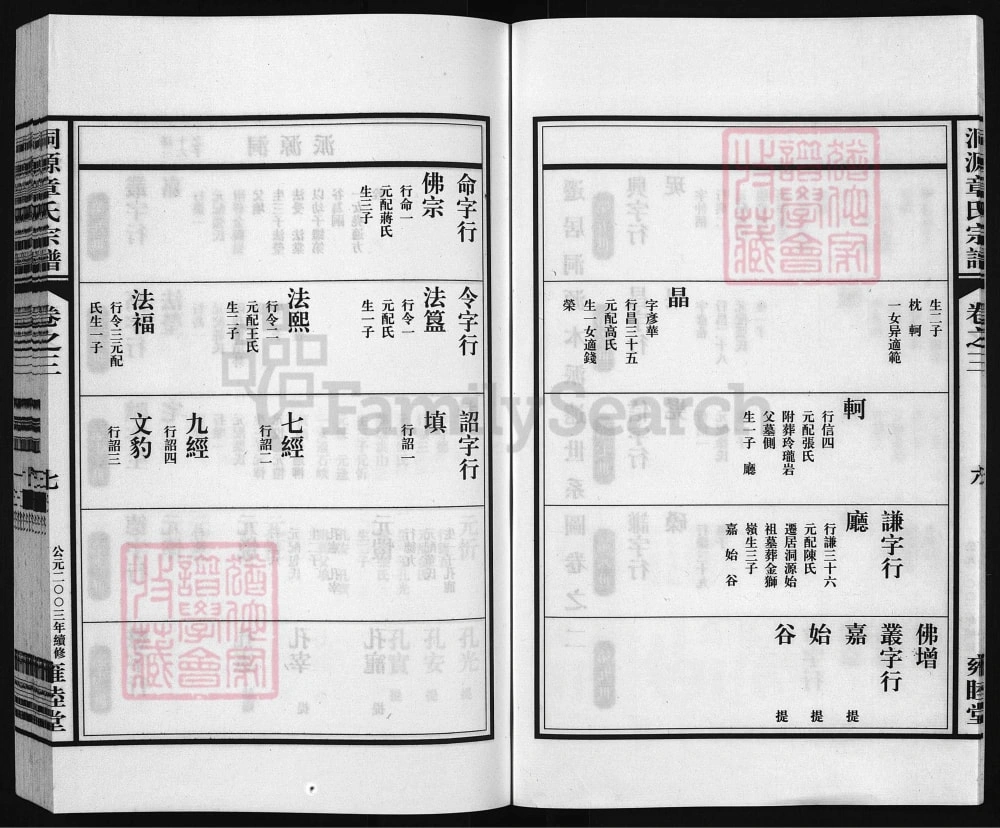 洞源章氏宗譜
卷之三
六
雍睦堂
生二子
枕 軻
一女昇適範
晶
字彥華
行昌三十五
元配高氏
生一女適錢
榮
軻
行信四
元配張氏
附葬玲瓏岩
父墓側
生一子 廳
謙字行
廳
行謙三十六
元配陳氏
遷居洞源始
祖墓葬金獅
嶺生三子
嘉 始 谷
佛增
叢字行
嘉 提
始 提
谷 提
命字行
佛宗
行命一
元配蔣氏
生三子
令字行
法簋
行令一
元配氏
生一子
法熙
行令二
元配王氏
生二子
法福
行令三元配
氏生一子
詔字行
填
行詔一
七經
行詔二
九經
行詔四
文豹
行詔三
洞源章氏宗譜
卷之三
七
公元二〇〇三年續修
雍睦堂
FamilySearch